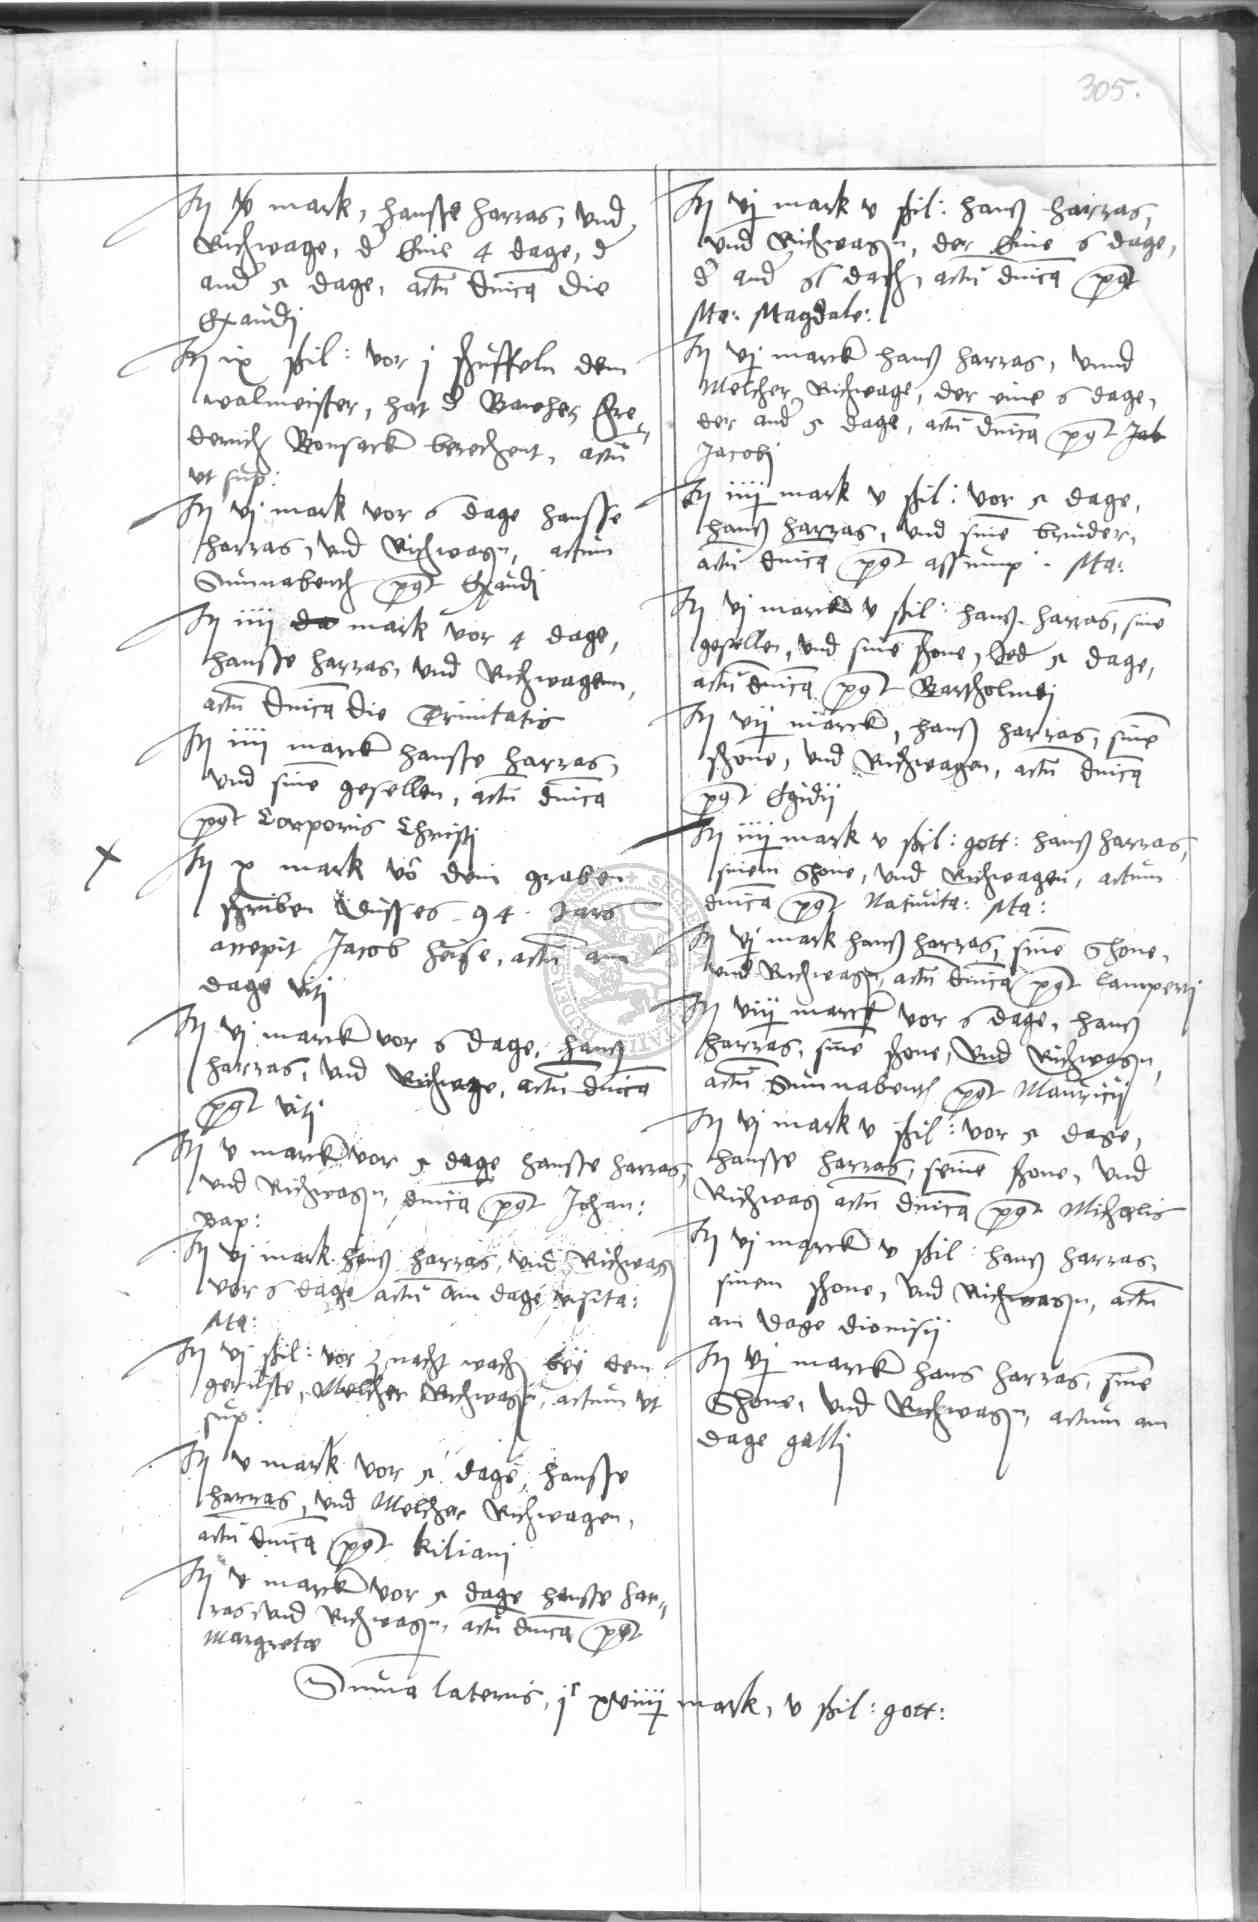 305.
It xv mark, hansse harras, und
Richwage, d' Eine 4 dage, d'
and' 5 dage, actu dnica die
Exaudj
It ix ßil: vor j schuffeln dem
walmeister, hat d' Bawher Fre
derich Bonsack berechent, actu
ut sup:
It vj mark vor 6 dage hansse
harras, und Richwag, actum
Sunnabent post Exaudj
It iiij mark vor 4 dage,
hansse harras, und Richwagenn,
actu dnica die Trinitatis
It iiij marck hansse harras,
und sine gesellen, actu dnica
post Corporis Christj
It x mark vor dem graben
schriben dusses 94 Jars
accepit Jacob heise, actu am
dage vitj
It vj marck vor 6 dage, hanß
harras, und Richwage, actu dnica
post vitj
It v marck vor 5 dage hansse harras,
und Richwag, dnica post Johan:
Bap:
It vj mark hanß harras, und Richwag
vor 6 dage actu am dage visita:
Ma:
It vj ßil: vor nacht wach bey dem
geruste, Melcher Richwag, actum ut
sup:
It v mark vor 5 dage, hansse
harras, und Melcher Richwagen,
actu dnica post kiliani
It v marck vor 5 dage hansse har
ras, und Richwag, actu dnica post
Margrete
It vj mark v ßil: hanß harras,
und Richwag, der Eine 6 dage,
d' and' dach, actu dnica post
Ma: Magdale:
It vj marck hanß harras, unnd
Melcher Richwage, der eine 6 dage,
der and' 5 dage, actu dnica post Jab
Jacobj
It iiij mark v ßil: vor 5 dage,
hanß harras, und sine bruder,
actu dnica post assump: Ma:
It vj marck v ßil: hanß harras, sine
gesellen, und sine shone, Jed' 5 dage,
actu dnica post Bartholmej
It vij marck, hanß harras, sinen
shone, und Richwagen, actu dnica
post Egidij
It iiij mark v ßil: gott: hanß harras,
sinem Shone, und Richwagen, actum
dnica post Nativita: Ma:
It vj mark hanß harras, sine shone,
und Richwag, actu dnica post lampertj
It viij marck vor 6 dage, hanß
harras, sine shone, und Richwag,
actu Sunnabent post Mauricij
It vj mark v ßil: vor 5 dage,
hansse harras, seine shone, und
Richwag actu dnica post Michelis
It vj marck v ßil: hanß harras,
sinem shone, und Richwag, actu
am dage dionisij
It vj marck hans harras, sine
Shone, und Richwag, actum am
dage gallj
Suma lateris, jc xviiij mark, v ßil: gott: